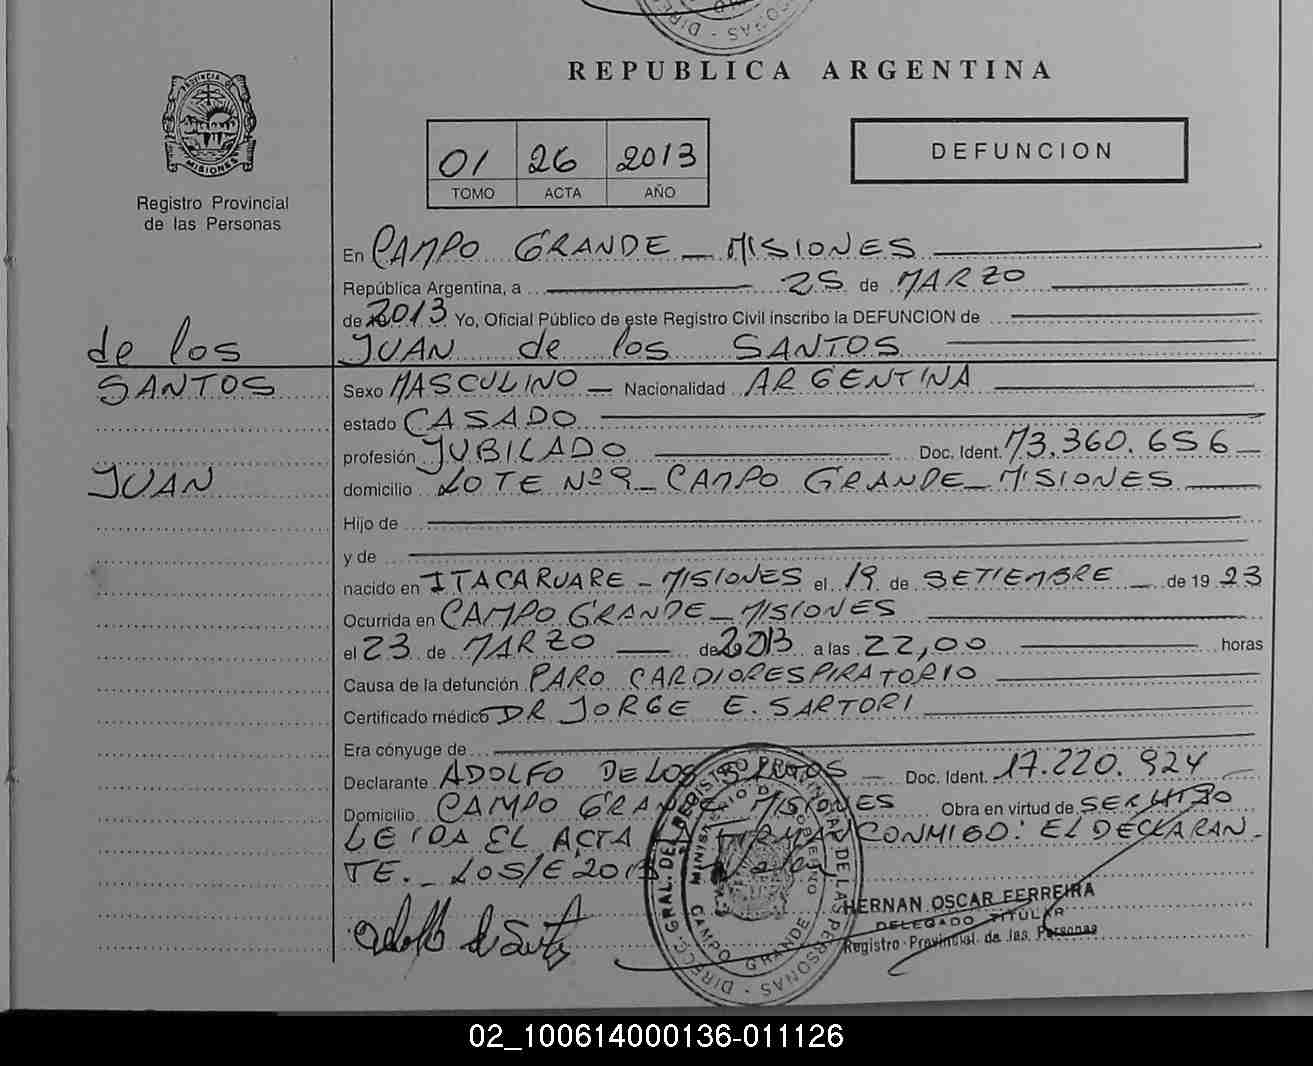 REPUBLICA ARGENTINA
PROVINCIA DE
MISIONES
Registro Provincial
de las Personas
01 26 2013
TOMO ACTA AÑO
DEFUNCION
En CAMPO GRANDE - MISIONES
República Argentina, a 25 de MARZO
de 2013 Yo, Oficial Público de este Registro Civil inscribo la DEFUNCION de
de los JUAN de los SANTOS
SANTOS Sexo MASCULINO - Nacionalidad ARGENTINA
estado CASADO
profesión JUBILADO Doc. Ident. M3.360.656
JUAN domicilio LOTE Nº 9 - CAMPO GRANDE - MISIONES
Hijo de
y de
nacido en ITACARUARE - MISIONES el 19 de SETIEMBRE de 1923
Ocurrida en CAMPO GRANDE - MISIONES
el 23 de MARZO de 2013 a las 22,00 horas
Causa de la defunción PARO CARDIORESPIRATORIO
Certificado médico DR JORGE E. SARTORI
Era cónyuge de
Declarante ADOLFO DE LOS SANTOS - Doc. Ident. 17.220.924
Domicilio CAMPO GRANDE MISIONES Obra en virtud de
LEIDA EL ACTA LA FIRMAN CONMIGO: EL DECLARAN-
TE. - LOS/E 2013
DIRECC. GRAL. DEL REGISTRO PROVINCIAL DE LAS PERSONAS
MINISTERIO DE GOBIERNO
CAMPO GRANDE
HERNAN OSCAR FERREIRA
DELEGADO TITULAR
Registro Provincial de las Personas
02_100614000136-011126